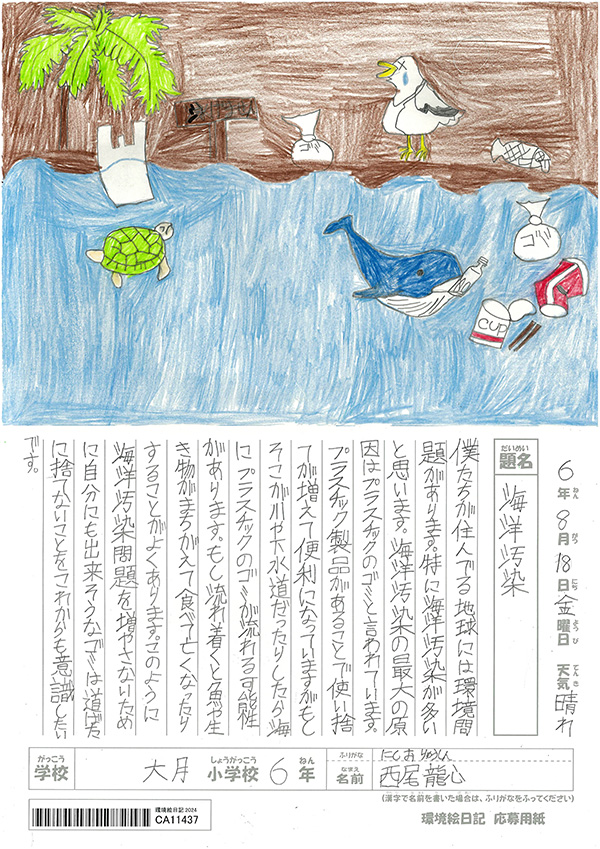 ゴミ
CUP
6年8月18日金曜日 天気晴れ
ねん
がつ
にち
ようび
てんき
だいめい
題名
海洋汚染
僕たちが住んでる地球には環境問
題があります。特に海洋汚染が多い
と思います。海洋汚染の最大の原
因はプラスチックのゴミと言われています。
プラスチック製品があることで使い捨
てが増えて便利になっていますがもし
そこが川や下水道だったりしたら海
にプラスチックのゴミが流れる可能性
があります。もし流れ着くと魚や生
き物がまちがえて食べて亡くなったり
することがよくあります。このように
海洋汚染問題を増やさないため
に自分にも出来そうなゴミは道ばた
に捨てないことをこれからも意識したい
です。
がっこう
学校
大月
しょうがっこう
小学校
6
ねん
年
ふりがな
にしお りゅうしん
なまえ
名前
西尾龍心
(漢字で名前を書いた場合は、ふりがなをふってください)
環境絵日記2024
CA11437
環境絵日記 応募用紙